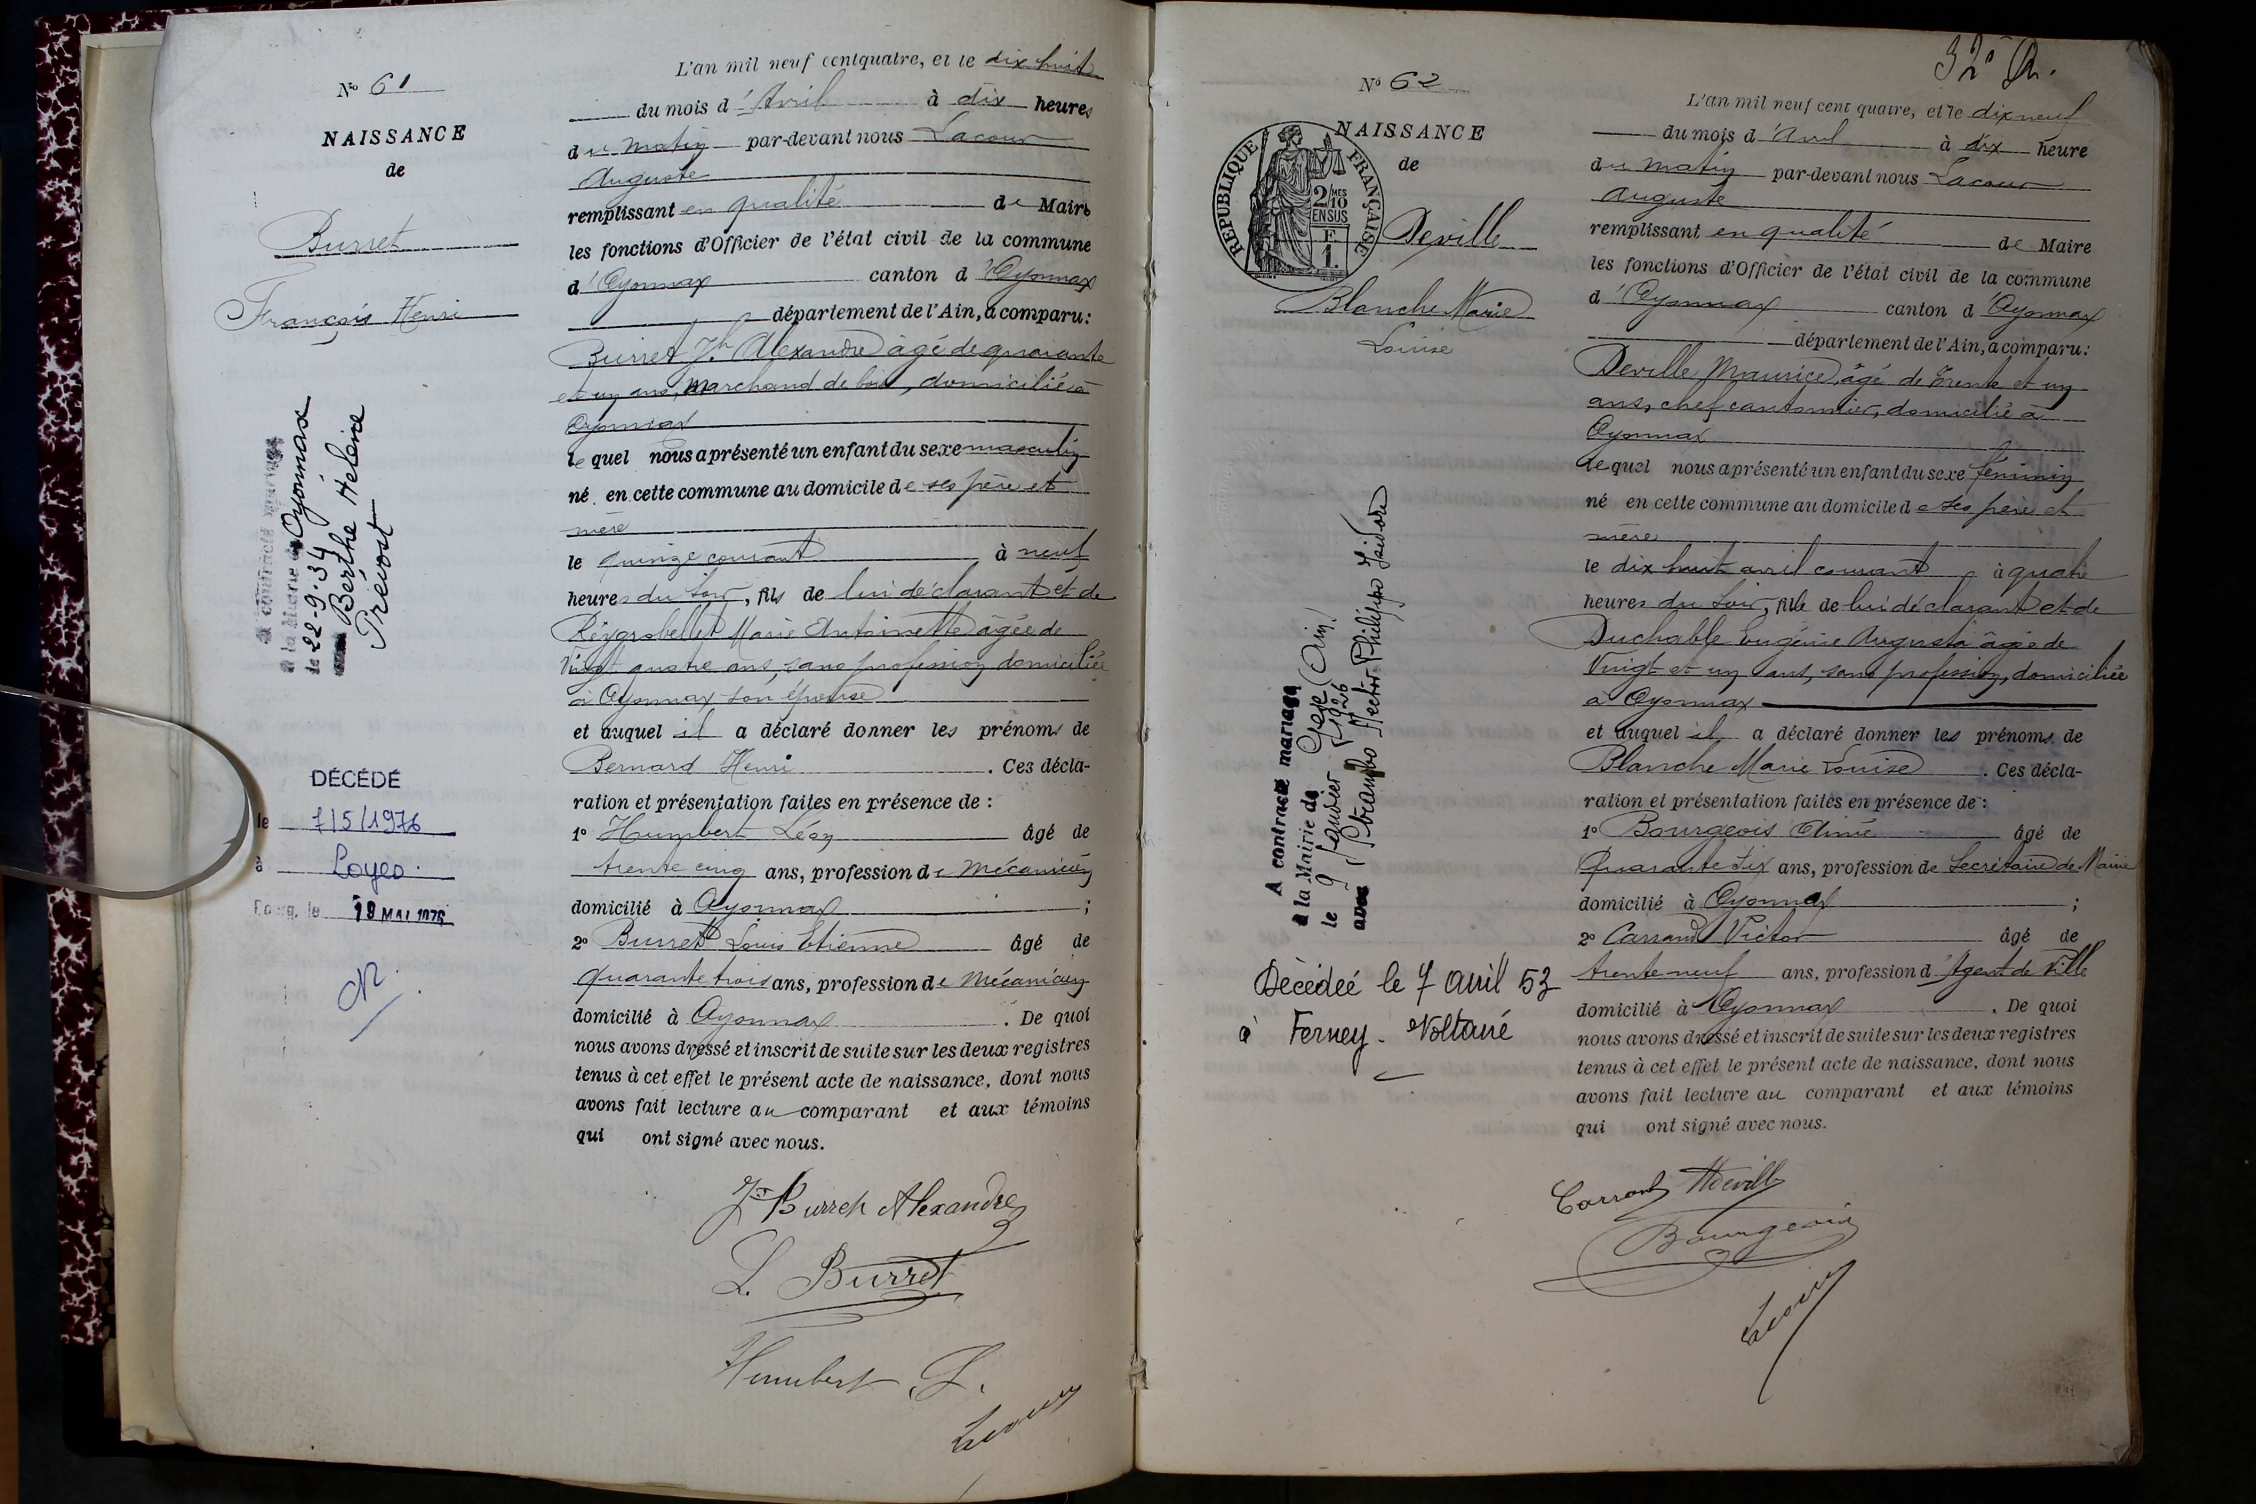 No 61
NAISSANCE
de
Burret
François Henri
A contracté mariage
à la Mairie d'Oyonnax
le 22-9-34
avec Berthe Hélène
Prévost
DÉCÉDÉ
le 7/5/1976
à Loyes.
Bourg, le 19 MAI 1976
L'an mil neuf cent quatre, et le dix huit
du mois d'Avril à dix heures
du matin par-devant nous Lacour
Auguste
remplissant en qualité de Maire
les fonctions d'Officier de l'état civil de la commune
d'Oyonnax canton d'Oyonnax
département de l'Ain, a comparu:
Burret Jh Alexandre âgé de quarante
et un ans, marchand de bois, domicilié à
Oyonnax
lequel nous a présenté un enfant du sexe masculin
né en cette commune au domicile de ses père et
mère
le quinze courant à neuf
heures du soir, fils de lui déclarant et de
Reygrobellet Marie Antoinette âgée de
Vingt quatre ans, sans profession domiciliée
à Oyonnax son épouse
et auquel il a déclaré donner les prénoms de
Bernard Henri. Ces décla-
ration et présentation faites en présence de :
1o Humbert Léon âgé de
trente cinq ans, profession de Mécanicien
domicilié à Oyonnax ;
2o Burret Louis Etienne âgé de
quarante trois ans, profession de Mécanicien
domicilié à Oyonnax. De quoi
nous avons dressé et inscrit de suite sur les deux registres
tenus à cet effet le présent acte de naissance, dont nous
avons fait lecture au comparant et aux témoins
qui ont signé avec nous.
Jh Burret Alexandre
L. Burret
Humbert L.
Lacour
32
No 62
NAISSANCE
de
REPUBLIQUE FRANÇAISE
2/10 MES
EN SUS
F.
1.
Deville
Blanche Marie
Louise
A contracté mariage
à la Mairie de Gex (Ain)
le 9 Janvier 1926
avec Strambo Hector Philippe Isidore
Dècèdeé le 7 avril 53
à Ferney-Voltaire
L'an mil neuf cent quatre, et le dix neuf
du mois d'Avril à dix heure
du matin par-devant nous Lacour
Auguste
remplissant en qualité de Maire
les fonctions d'Officier de l'état civil de la commune
d'Oyonnax canton d'Oyonnax
département de l'Ain, a comparu:
Deville Maurice, âgé de trente et un
ans, chef cantonnier, domicilié à
Oyonnax
lequel nous a présenté un enfant du sexe féminin
né en cette commune au domicile de ses père et
mère
le dix huit avril courant à quatre
heures du soir, fille de lui déclarant et de
Duchable Eugénie Augusta âgée de
Vingt et un ans, sans profession, domiciliée
à Oyonnax
et auquel il a déclaré donner les prénoms de
Blanche Marie Louise. Ces décla-
ration et présentation faites en présence de :
1o Bourgeois Aimé âgé de
Quarante six ans, profession de Secrétaire de Mairie
domicilié à Oyonnax ;
2o Carrand Victor âgé de
trente neuf ans, profession d'Agent de Ville
domicilié à Oyonnax. De quoi
nous avons dressé et inscrit de suite sur les deux registres
tenus à cet effet le présent acte de naissance, dont nous
avons fait lecture au comparant et aux témoins
qui ont signé avec nous.
Carrand MDeville
Bourgeois
Lacour